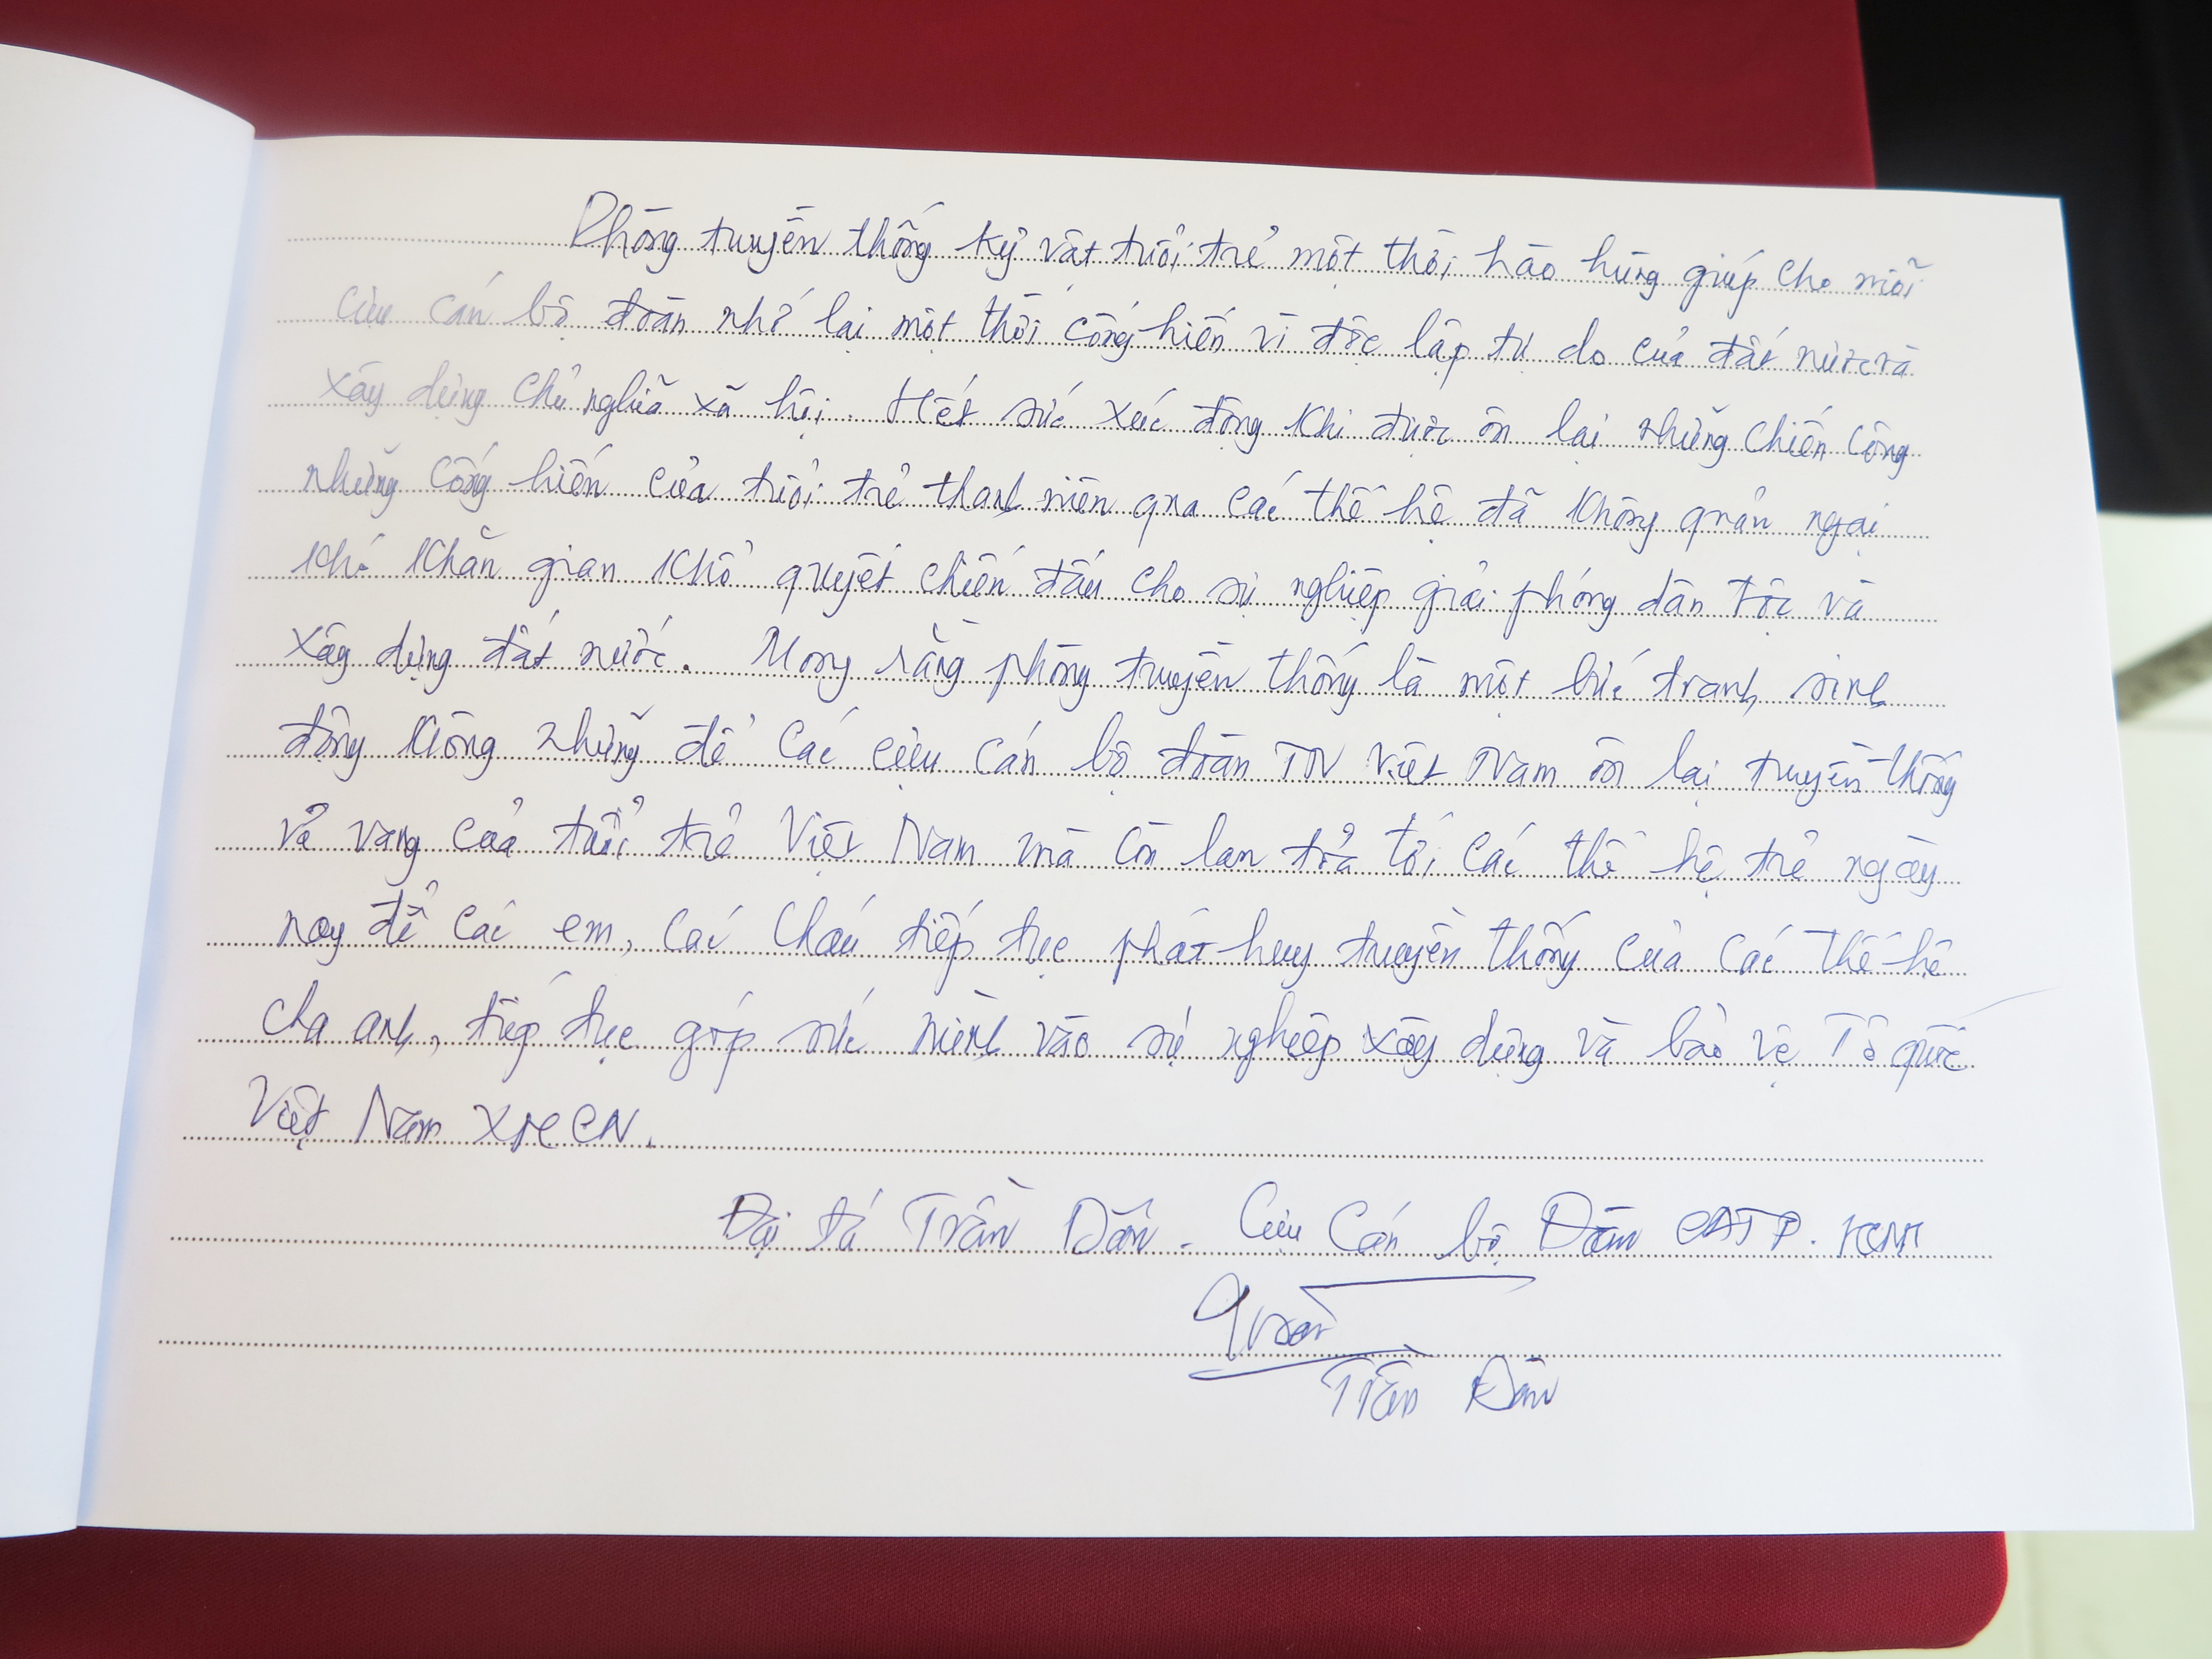 Phòng truyền thống kỷ vật tuổi trẻ một thời hào hùng giúp cho mỗi
cựu cán bộ đoàn nhớ lại một thời cống hiến vì độc lập tự do của đất nước và
xây dựng chủ nghĩa xã hội. Hết sức xúc động khi được ôn lại những chiến công
những cống hiến của tuổi trẻ thanh niên qua các thế hệ đã không quản ngại
khó khăn gian khổ quyết chiến đấu cho sự nghiệp giải phóng dân tộc và
xây dựng đất nước. Mong rằng phòng truyền thống là một bức tranh sinh
động không những để các cựu cán bộ đoàn TN Việt Nam ôn lại truyền thống
vẻ vang của tuổi trẻ Việt Nam mà còn lan tỏa tới các thế hệ trẻ ngày
nay để các em, các cháu tiếp tục phát huy truyền thống của các thế hệ
cha anh, tiếp tục góp sức mình vào sự nghiệp xây dựng và bảo vệ Tổ quốc
Việt Nam XHCN.
Đại tá Trần Dân - Cựu Cán bộ Đoàn CATP. HCM
Trần Dân